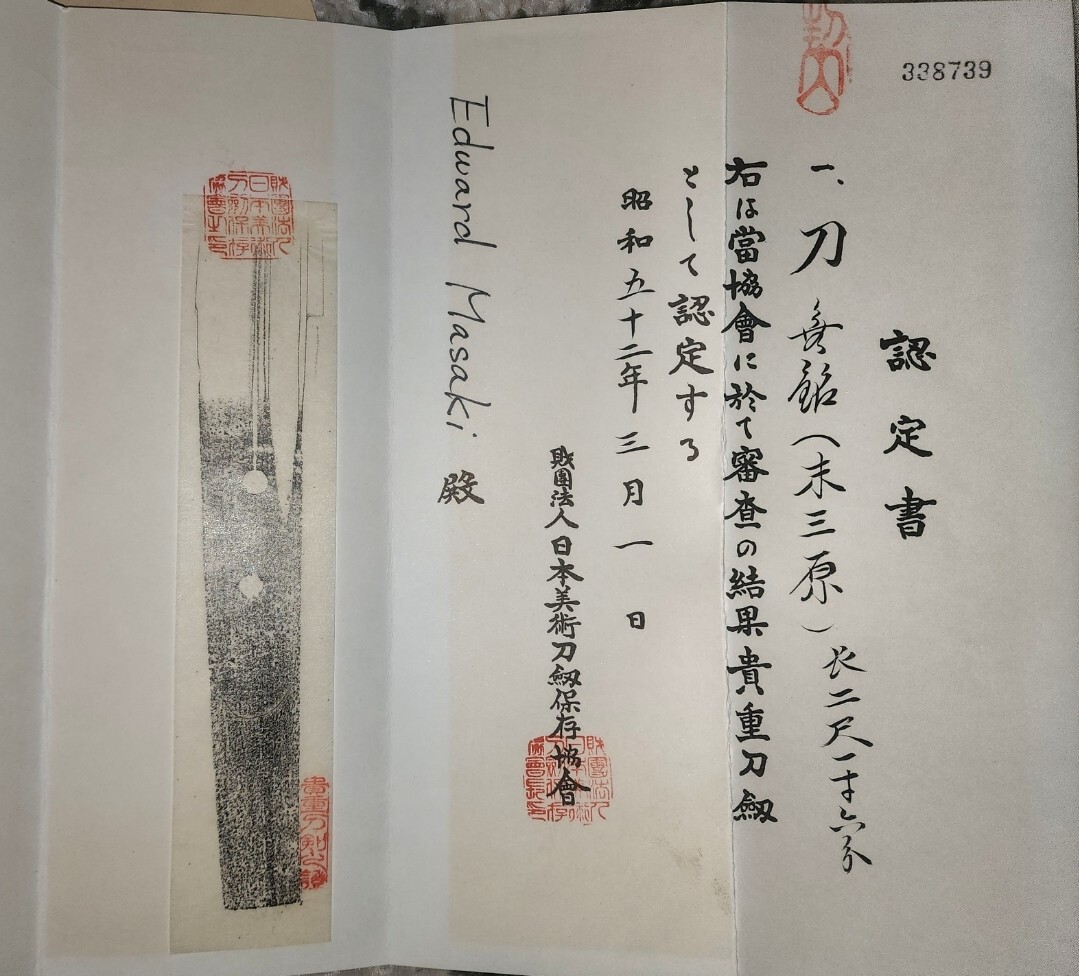 338739
認定書
一、刀 無銘(末三原)長二尺一寸六分
右は當協會に於て審査の結果貴重刀劔
として認定する
昭和五十二年三月一日
財團法人日本美術刀劔保存協會
Edward Masaki 殿